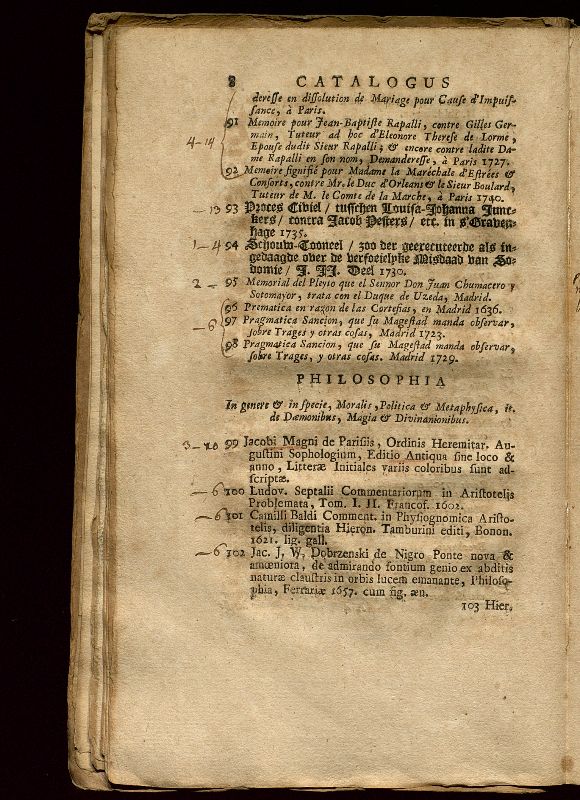 8 CATALOGUS
deresse en dissolution de Mariage pour Cause d'Impuis-
sance, à Paris.
91 Memoire pour Jean-Baptiste Rapalli, contre Gilles Ger-
main, Tuteur ad hoc d'Eleonore Therese de Lorme,
4-14
Epouse dudit Sieur Rapalli; & encore contre ladite Da-
me Rapalli en son nom, Demanderesse, à Paris 1727.
92 Memoire signifié pour Madame la Maréchale d'Estrées &
Consorts, contre Mr. le Duc d'Orleans & le Sieur Boulard,
Tuteur de M. le Comte de la Marche, à Paris 1740.
- 13 93 Proces Civiel / tusschen Louisa-Johanna Junc-
kers / contra Jacob Pesters / etc. in s'Graven-
hage 1735.
1-4 94 Schouw-Tooneel / zoo der geexecuteerde als in-
gedaagde over de verfoeielyke Misdaad van So-
domie / I. III. Deel 1730.
2 - 95 Memorial del Pleyto que el Sennor Don Juan Chumacero y
Sotomayor, trata con el Duque de Uzeda, Madrid.
96 Prematica en razon de las Cortesias, en Madrid 1636.
- 6 97 Pragmatica Sancion, que su Magestad manda observar,
sobre Trages y otras cosas, Madrid 1723.
98 Pragmatica Sancion, que su Magestad manda observar,
sobre Trages, y otras cosas. Madrid 1729.
PHILOSOPHIA
In genere & in specie, Moralis, Politica & Metaphysica, it.
de Dæmonibus, Magia & Divinanionibus.
3-10 99 Jacobi Magni de Parisiis, Ordinis Heremitar. Au-
gustini Sophologium, Editio Antiqua sine loco &
anno, Litteræ Initiales variis coloribus sunt ad-
scriptæ.
- 6 100 Ludov. Septalii Commentariorum in Aristotelis
Problemata, Tom. I. II. Francof. 1602.
- 6 101 Camilli Baldi Comment. in Physiognomica Aristo-
telis, diligentia Hieron. Tamburini editi, Bonon.
1621. lig. gall.
- 6 102 Jac. J. W. Dobrzenski de Nigro Ponte nova &
amœniora, de admirando fontium genio ex abditis
naturæ claustris in orbis lucem emanante, Philoso-
phia, Ferrariæ 1657. cum fig. æn.
103 Hier.